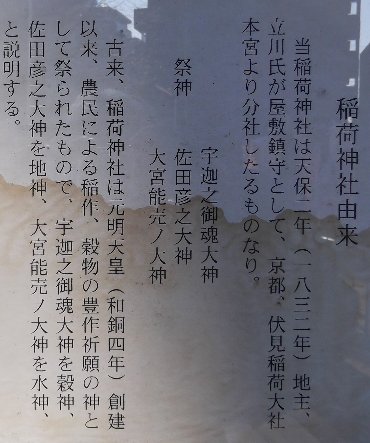 稲荷神社由来
当稲荷神社は天保二年（一八三二年）地主、
立川氏が屋敷鎮守として、京都、伏見稲荷大社
本宮より分社したるものなり。
宇迦之御魂大神
祭神　佐田彦之大神
大宮能売ノ大神
古来、稲荷神社は元明天皇（和銅四年）創建
以来、農民による稲作、穀物の豊作祈願の神と
して祭られたもので、宇迦之御魂大神を穀神、
佐田彦之大神を地神、大宮能売ノ大神を水神、
と説明する。